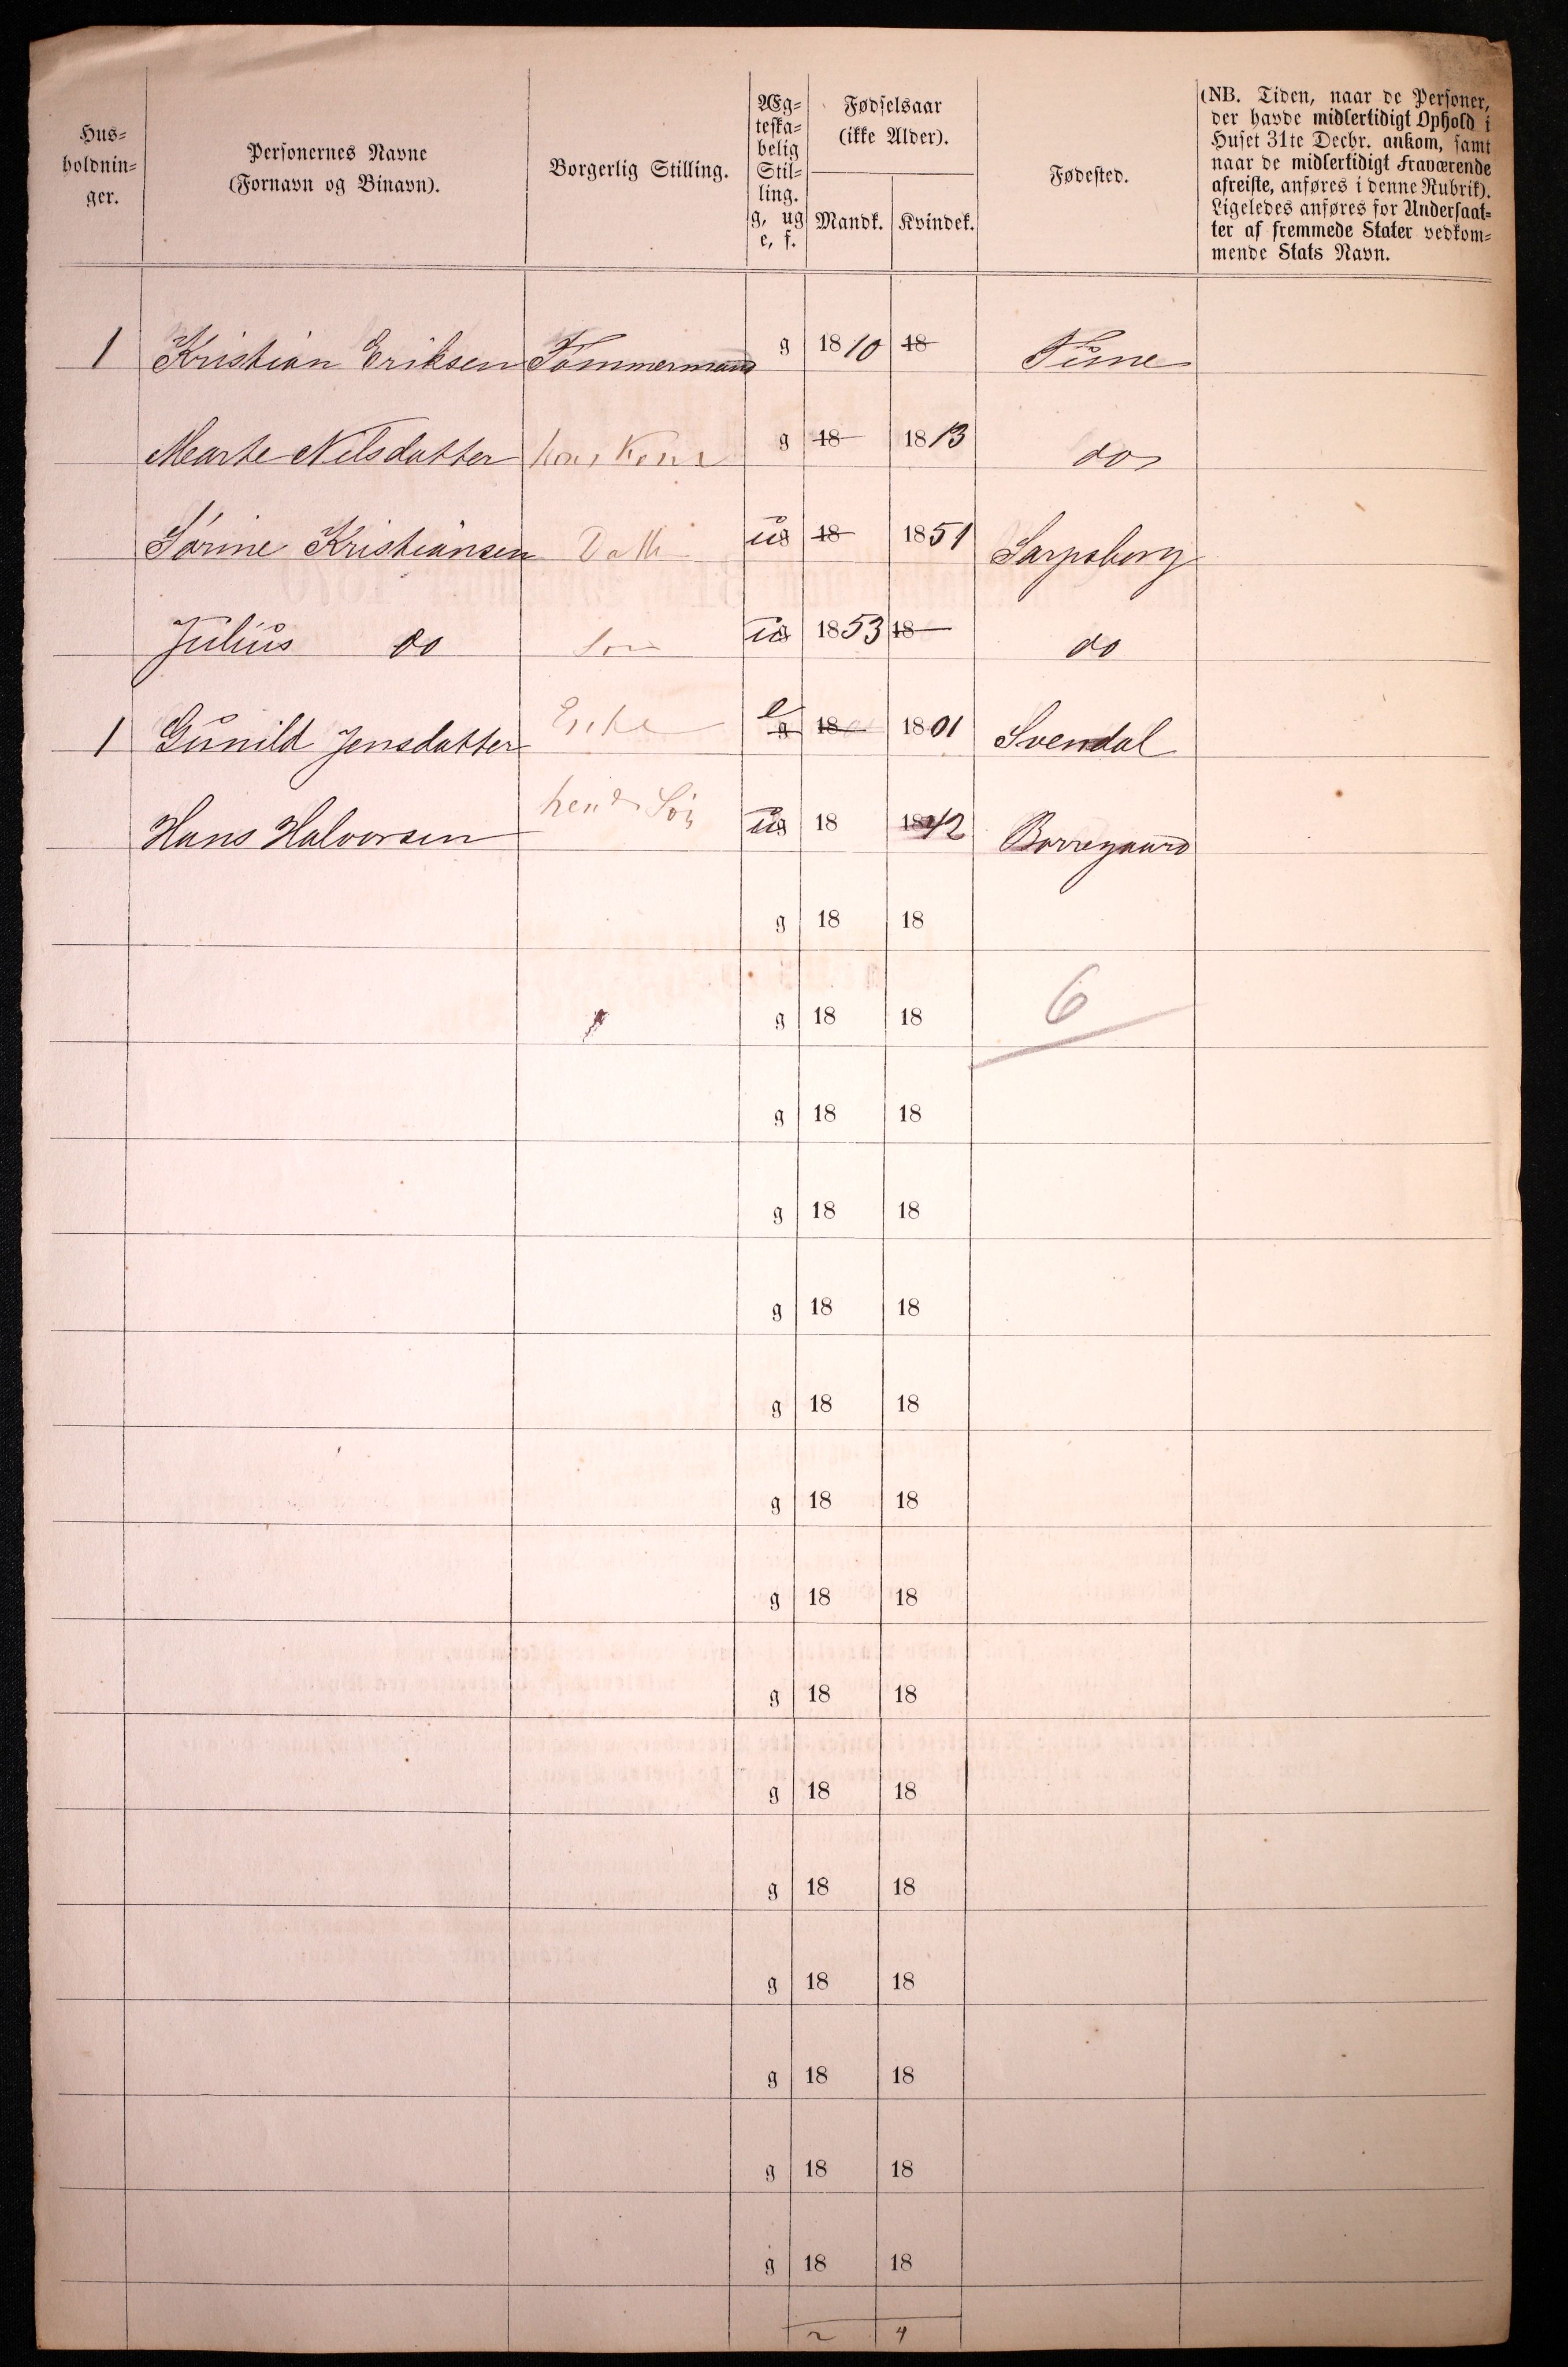 Hus-
holdnin-
ger.
Personernes Navne
(Fornavn og Binavn).
Borgerlig Stilling.
Æg-
teska-
belig
Stil-
ling.
g, ug
e, f.
Fødselsaar
(ikke Alder).
Mandk. Kvindek.
Fødested.
(NB. Tiden, naar de Personer,
der havde midlertidigt Ophold i
Huset 31te Decbr. ankom, samt
naar de midlertidigt fraværende
afreiste, anføres i denne Rubrik).
Ligeledes anføres for Undersaat-
ter af fremmede Stater vedkom-
mende Stats Navn.
1 Kristian Eriksen Tømmermand g 1810 18 Tune
Marte Nilsdatter hans Kone g 18 1813 do
Sørine Kristiansen Datt ug 18 1851 Sarpsborg
Julius do Søn ug 1853 18 do
1 Gunild Jensdatter Enke e g 18 1801 Svendal
Hans Halvorsen hendes Søn ug 18 1842 Borregaard
g 18 18
g 18 18 6
g 18 18
g 18 18
g 18 18
g 18 18
g 18 18
g 18 18
g 18 18
g 18 18
g 18 18
g 18 18
g 18 18
g 18 18
g 18 18
2 4